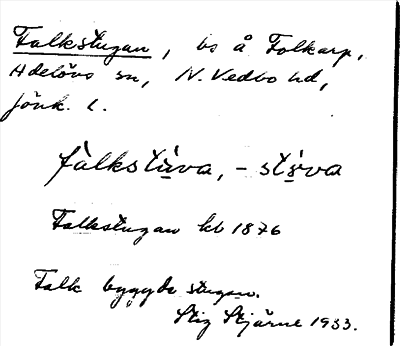 Falkstugan, bs å Folkarp,
Adelövs sn, N. Vedbo hd,
Jönk. l.
fàlkstu̱va, -stúva
Falkstugan kb 1876
Falk byggde stugan.
Stig Stjärne 1933.